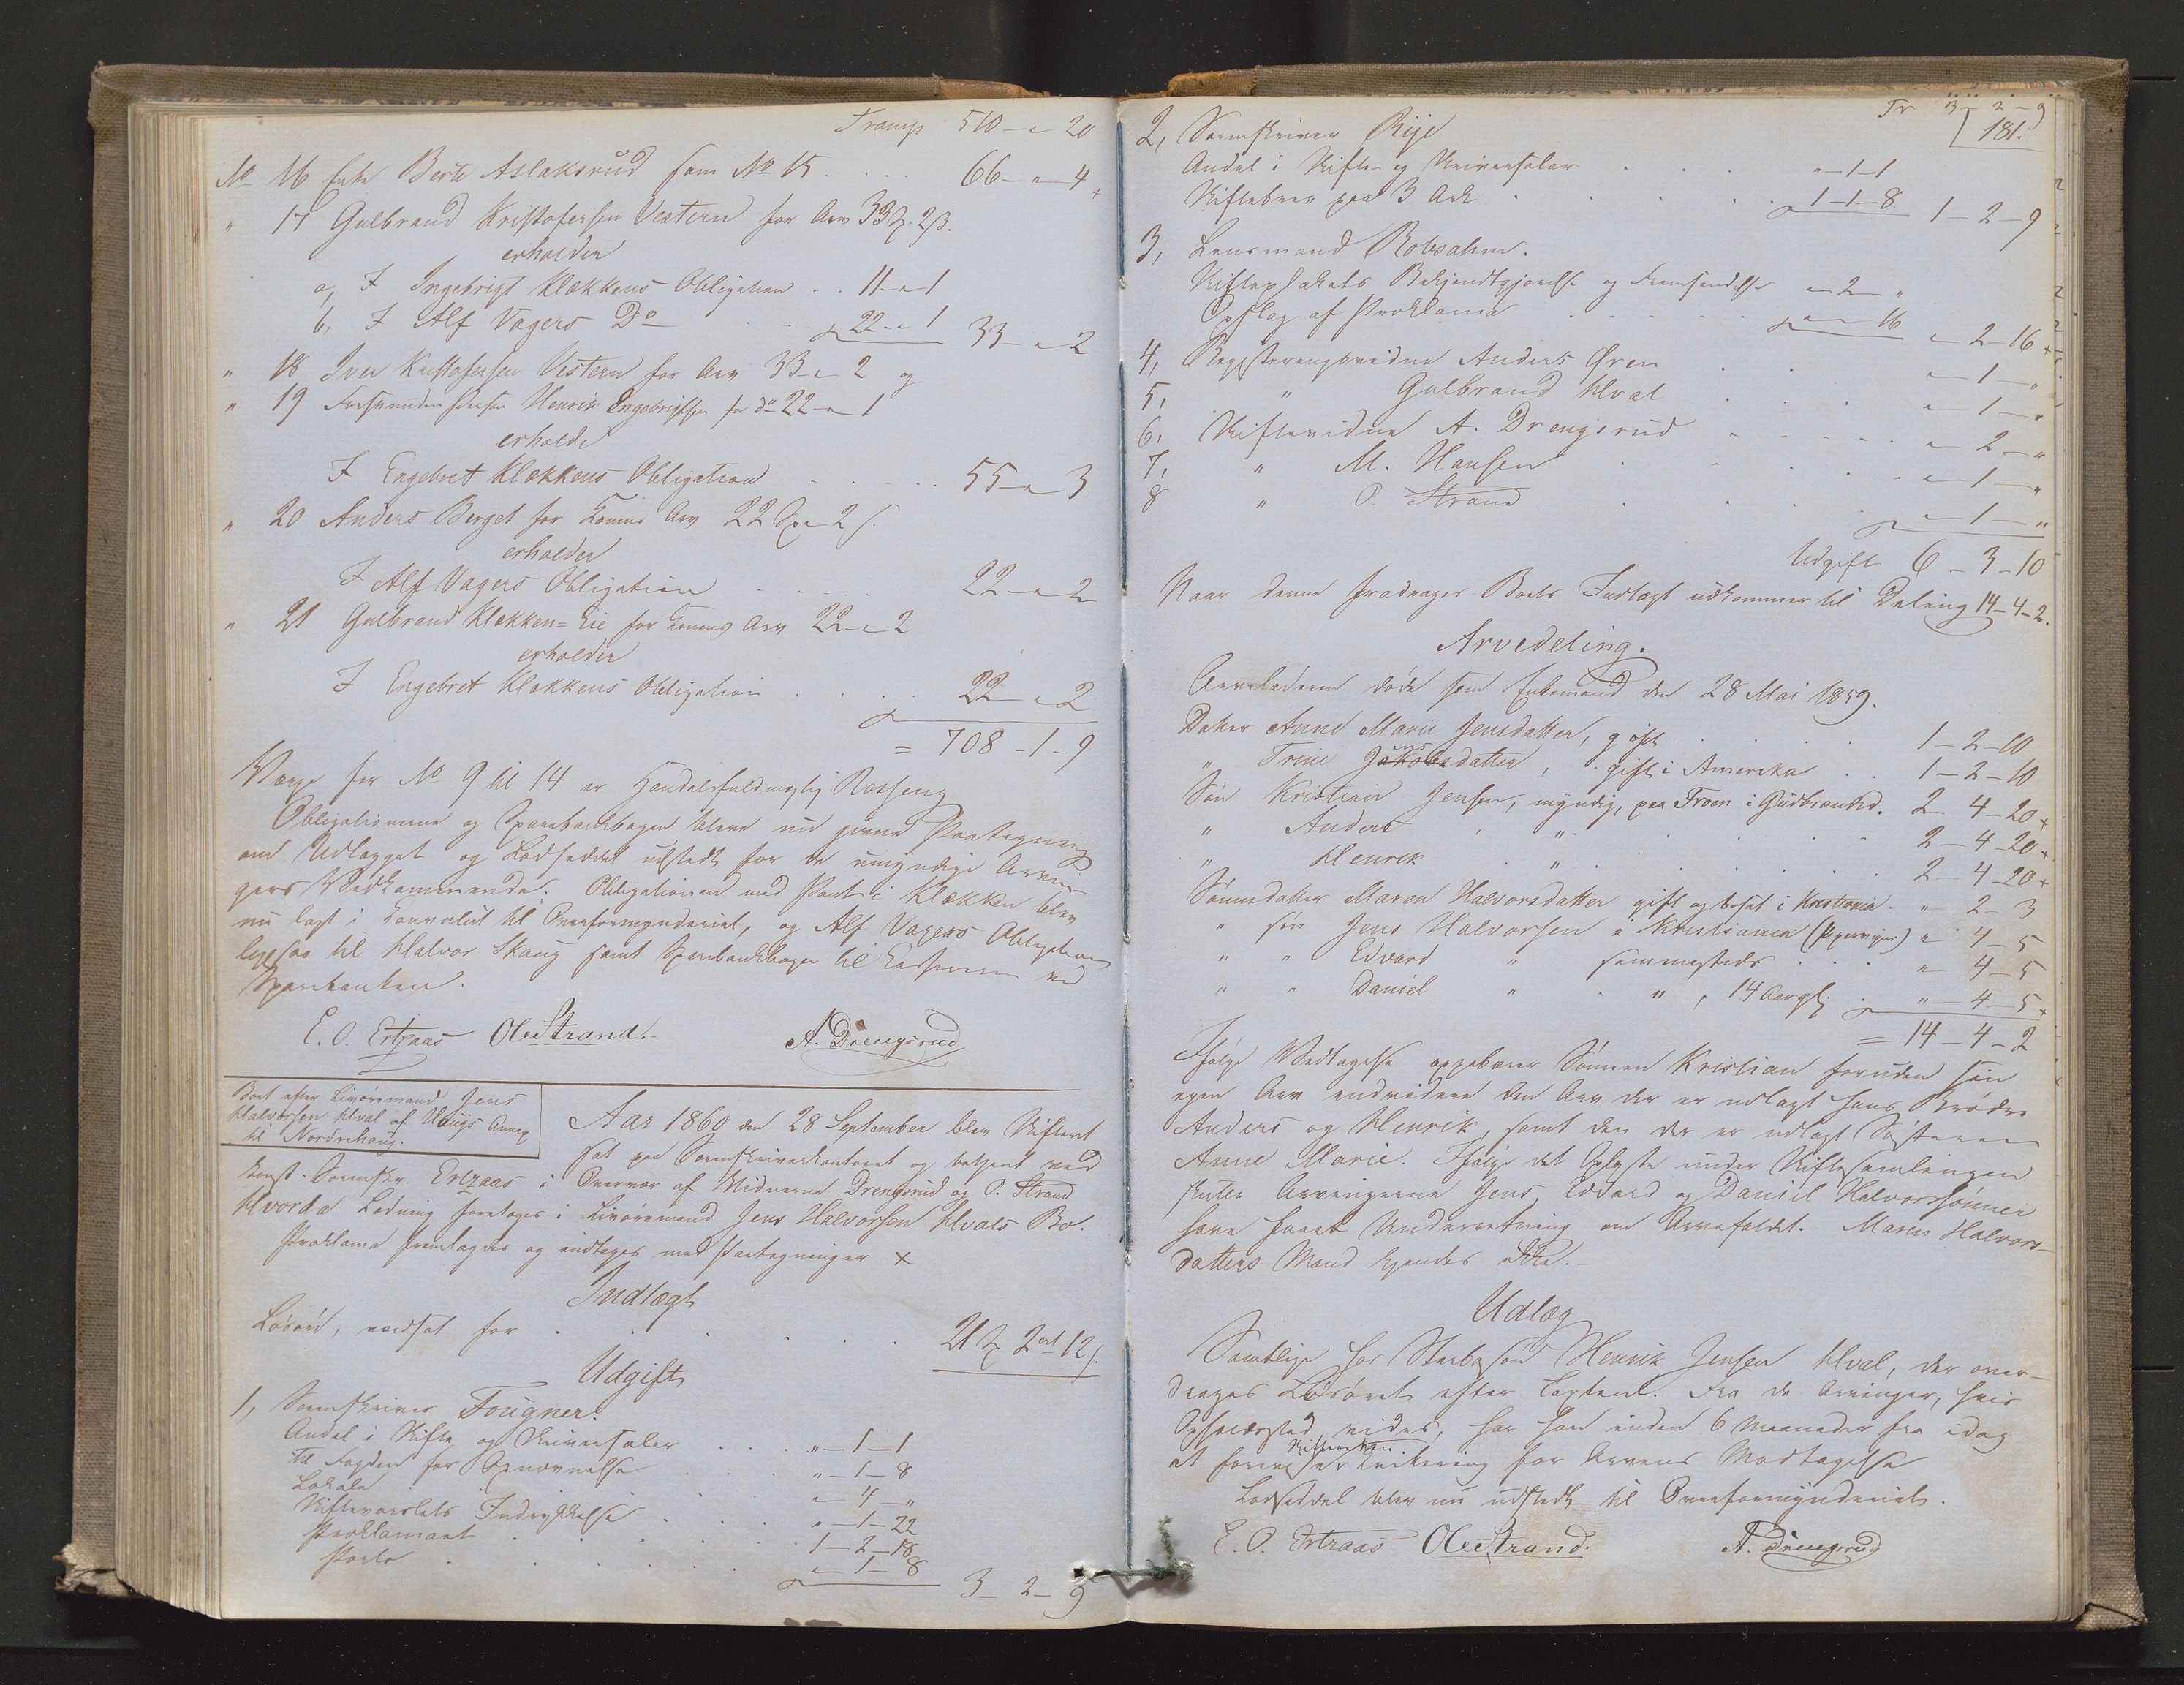 Transp 510 - " 20
No 16 Enke Berte Aslaksrud som No 15 . . . . 66 - " - 4
" 17 Gulbrand Kristofersen Vestern for Arv 33 Spd. 2 ß.
erholder
a, I Ingebrigt Klækkens Obligation . . 11 - " 1
b, I Alf Vagers Do 22 - " 1 33 - " 2
" 18 Iver Kristofersen Vestern for Arv 33 - " 2 og
" 19 Henrik Engebrigtsen for do 22 - " 1
erholde
I Engebret Klækkens Obligation . . . . . 55 - " 3
" 20 Anders Berget for Konens Arv 22 Sp " 2 s.
erholder
I Alf Vagers Obligation . . . . 22 - " 2
" 21 Gulbrand Klækken=Eie for Konens Arv 22 - " 2
erholder
I Engebret Klækkens Obligation . . . . 22 - " 2
= 708 - 1 - 9
Værge for No 9 til 14 er Handelsfuldmægtig Rosseng
Obligationerne og Sparebankbogen bleve nu givne Paategning
om Udlægget og Lodseddel udstedt for de umyndige Arvin-
gers Vedkommende. Obligationen med Pant i Klækken blev
nu lagt i Konvolut til Overformynderiet, og Alf Vagers Obligation
til Halvor Skaug samt Sparebankbogen til Kassereren ved
Sparebanken.
E. O. Ertzaas Ole Strand. A. Drengsrud
Boet efter Livøremand Jens
Halvorsen Hval af Haugs Annex
til Nordrehaug.
Aar 1860 den 28 September blev Skifteret
sat paa Sorenskriverkontoret og betjent ved
konst. Sorenskr. Ertzaas i Overvær af Vidnerne Drengsrud og O. Strand
Hvorda Lodning foretoges i Livøremand Jens Halvorsen Hvals Bo.
Proklama fremlagdes og indtages med Paategninger ×
Indtægt
Løsøre, værdsat for . . . . . 21 Spd 2 ort 12 s.
Udgift
1, Sorenskriver Fougner.
Andel i Skifte og Skriversalær . . . . " - 1 - 1
Til Fogden for Opnævnelse . . . . " - 1 - 8
Lokale . . . . " - 4 - "
Skiftevarslets Indrykkelse . . . . " - 1 - 22
Proklamaet . . . . 1 - 2 - 18
Porto . . . . " - 1 - 8 3 - 2 - 9
Tr 3 - 2 - 9
181.
2, Sorenskriver Rije
Andel i Skifte- og Skriversalær . . . . " - 1 - 1
Skiftebrev paa 3 Ark . . . . 1 - 1 - 8 1 - 2 - 9
3, Lensmand Robsahm.
Skifteplakats Bekjendtgjørelse og Fremsendelse " - 2 - "
Opslag af Proklama . . . . " - " 16 " - 2 - 16
4, Registreringsvidne Anders Øren . . " - 1 - "
5, " Gulbrand Hval . . . " - 1 - "
6, Skiftevidne A. Drengsrud . . . . " - 2 - "
7, " M. Hansen . . . " - 1 - "
8 " O. Strand . . . " - 1 - "
Udgift 6 - 3 - 10
Naar denne fradrages Boets Indtægt udkommer til Deling 14 - 4 - 2.
Arvedeling.
Arveladeren døde som Enkemand den 28 Mai 1859.
Datter Anne Marie Jensdatter, gift . . . . 1 - 2 - 10
" Trine Jensdatter, gift i Amerika . . 1 - 2 - 10
Søn Kristian Jensen, myndig, paa Froen i Gudbrandsd. 2 - 4 - 20
" Anders " . . . 2 - 4 - 20
" Henrik " . . . 2 - 4 - 20
Sønnedatter Maren Halvorsdatter gift og bosat i Kristiania . " 2 - 3
" søn Jens Halvorsen i Kristiania (Pipervigen) " 4 - 5
" " Edvard " sammesteds . . . " 4 - 5
" " Daniel " " , 14 Aar gl. . " - 4 - 5
= 14 - 4 - 2
Ifølge Vedtagelse oppebærer Sønnen Kristian foruden sin
egen Arv endvidere den Arv der er udlagt hans Brødre
Anders og Henrik, samt den der er udlagt Søsteren
Anne Marie. Ifølge det Oplyste under Skiftesamlingen
skulle Arvingerne Jens, Edvard og Daniel Halvorssønner
have faaet Underretning om Arvefaldet. Maren Halvors-
datters Mand kjendes ikke. -
Udlæg
Samtlige hos Stærbosøn Henrik Jensen Hval, der over-
drages Løsøret efter Taxten. Fra de Arvinger, hvis
Opholdssted vides, har han inden 6 Maaneder fra idag
at forevise Skifteretten Kvittering for Arvens Modtagelse
Lodseddel blev nu udstedt til Overformynderiet.
E. O. Ertzaas Ole Strand. A. Drengsrud